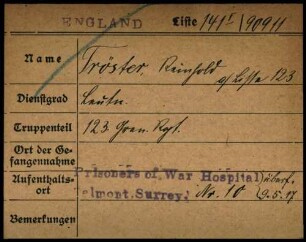 ENGLAND Liste 141 I / 90911
Name Tröster, Reinhold
Dienstgrad Leutn.
Truppenteil 123. Gren. Rgt.
Ort der Ge-
fangennahme
Aufenthalts-
ort Prisoners of War Hospital
elmont. Surrey. No. 10
Bemerkungen